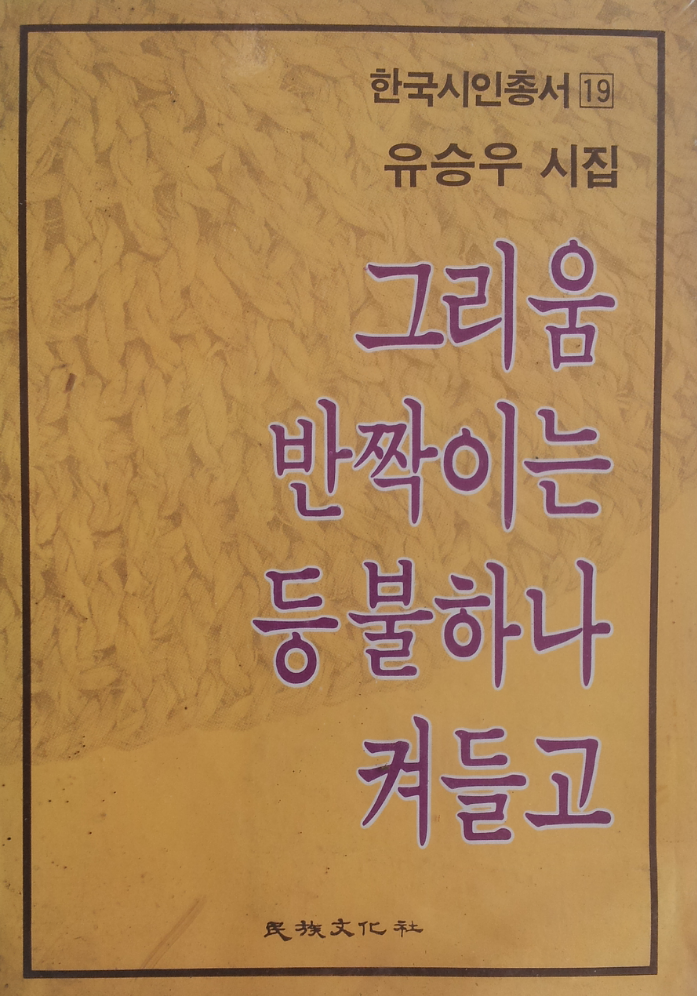 한국시인총서 19
유승우 시집
그리움
반짝이는
등불하나
켜들고
民族文化社